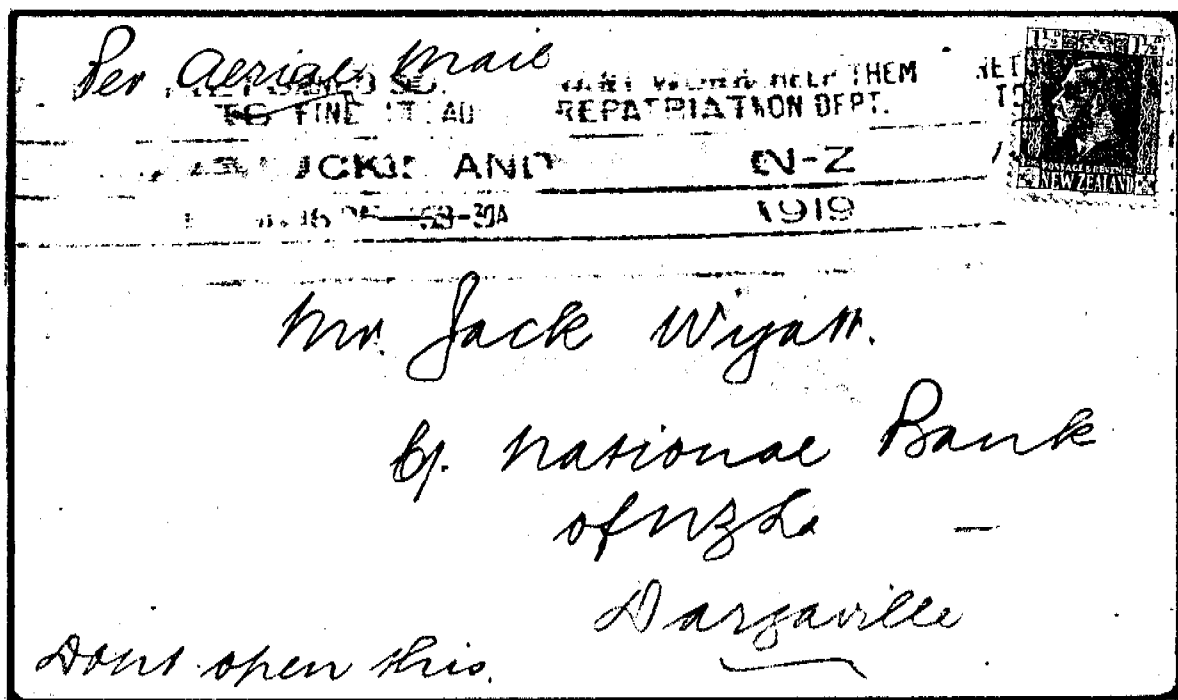 Per Aerial Mail
WANT WORK HELP THEM
TO FIND IT REPATRIATION DEPT.
AUCKLAND N-Z
-30A 1919
1½ 1½
POSTAGE & REVENUE
NEW ZEALAND
Mr. Jack Wyatt.
C/. National Bank
of NZ Ld —
Dargaville
Dont open this.